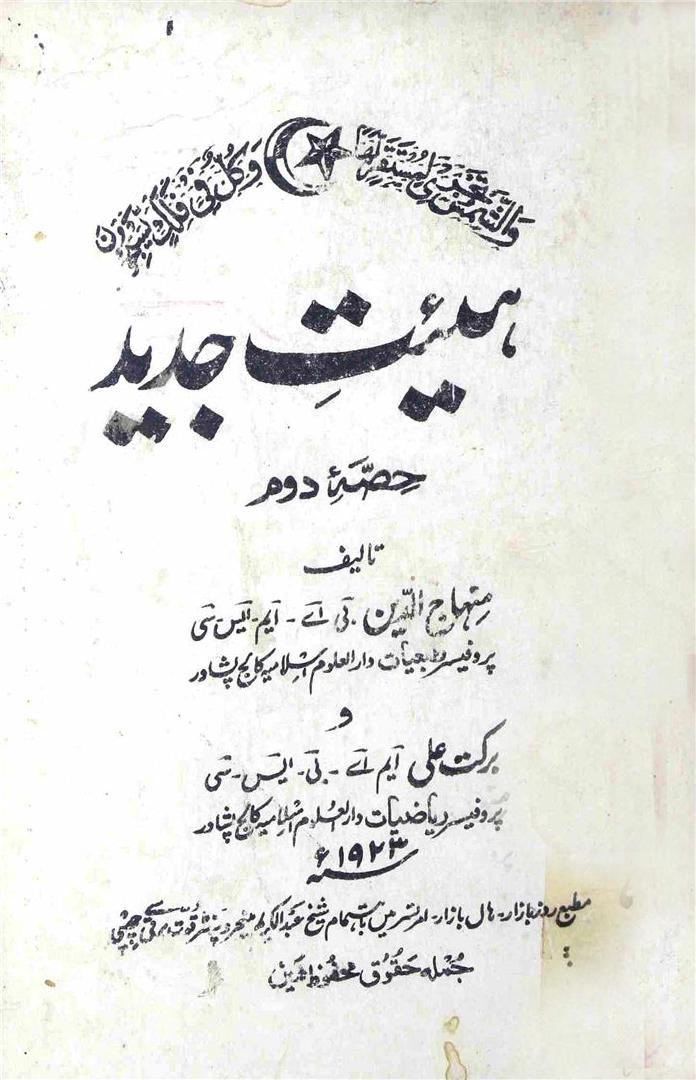 وَالشَّمْسُ تَجْرِيْ لِمُسْتَقَرٍّ لَّهَا
وَكُلٌّ فِيْ فَلَكٍ يَّسْبَحُوْنَ
ہیئتِ جدید
حِصّۂ دوم
تالیف
مِنہاج الدّین بی اے - ایم - ایس - سی
پروفیسر طبعیات دارالعلوم اسلامیہ کالج پشاور
و
برکت علی ایم اے - بی - ایس - سی
پروفیسر ریاضیات دارالعلوم اسلامیہ کالج پشاور
۱۹۲۳ء
مطبع روز بازار - ہال بازار - امرتسر میں باہتمام شیخ عبدالکریم منیجر و پرنٹر چھپی
جُملہ حقُوق محفُوظ ہیں